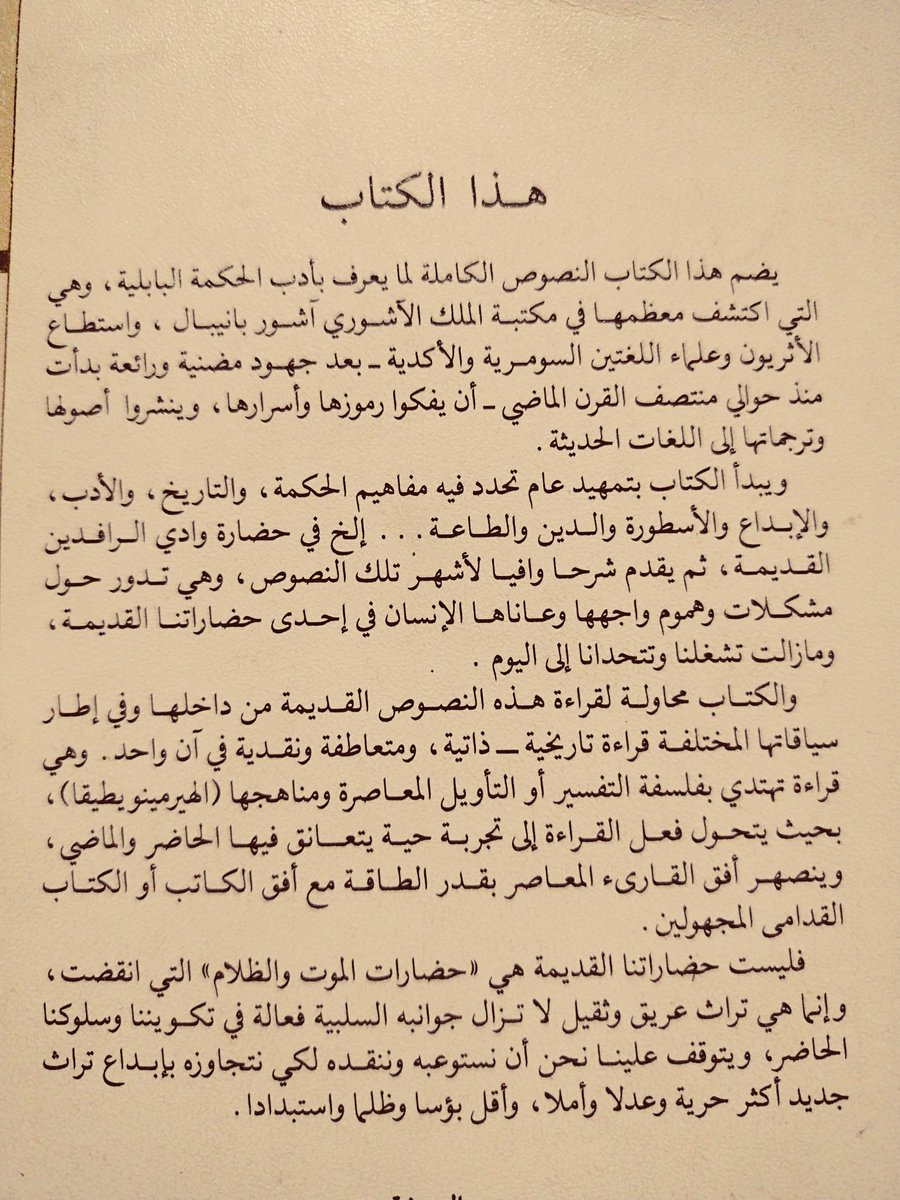 هذا الكتاب
يضم هذا الكتاب النصوص الكاملة لما يعرف بأدب الحكمة البابلية، وهي
التي اكتشف معظمها في مكتبة الملك الآشوري آشور بانيبال ، واستطاع
الأثريون وعلماء اللغتين السومرية والأكدية ـ بعد جهود مضنية ورائعة بدأت
منذ حوالي منتصف القرن الماضي ـ أن يفكوا رموزها وأسرارها، وينشروا أصولها
وترجماتها إلى اللغات الحديثة .
ويبدأ الكتاب بتمهيد عام تحدد فيه مفاهيم الحكمة، والتاريخ، والأدب،
والإبداع والأسطورة والدين والطاعة... إلخ في حضارة وادي الرافدين
القديمة، ثم يقدم شرحا وافيا لأشهر تلك النصوص، وهي تدور حول
مشكلات وهموم واجهها وعاناها الإنسان في إحدى حضاراتنا القديمة،
ومازالت تشغلنا وتتحدانا إلى اليوم .
والكتاب محاولة لقراءة هذه النصوص القديمة من داخلها وفي إطار
سياقاتها المختلفة قراءة تاريخية ـ ذاتية، ومتعاطفة ونقدية في آن واحد. وهي
قراءة تهتدي بفلسفة التفسير أو التأويل المعاصرة ومناهجها (الهيرمينويطيقا)،
بحيث يتحول فعل القراءة إلى تجربة حية يتعانق فيها الحاضر والماضي،
وينصهر أفق القارىء المعاصر بقدر الطاقة مع أفق الكاتب أو الكتاب
القدامى المجهولين .
فليست حضاراتنا القديمة هي «حضارات الموت والظلام» التي انقضت،
وإنما هي تراث عريق وثقيل لا تزال جوانبه السلبية فعالة في تكويننا وسلوكنا
الحاضر، ويتوقف علينا نحن أن نستوعبه وننقده لكي نتجاوزه بإبداع تراث
جديد أكثر حرية وعدلا وأملا، وأقل بؤسا وظلما واستبدادا .